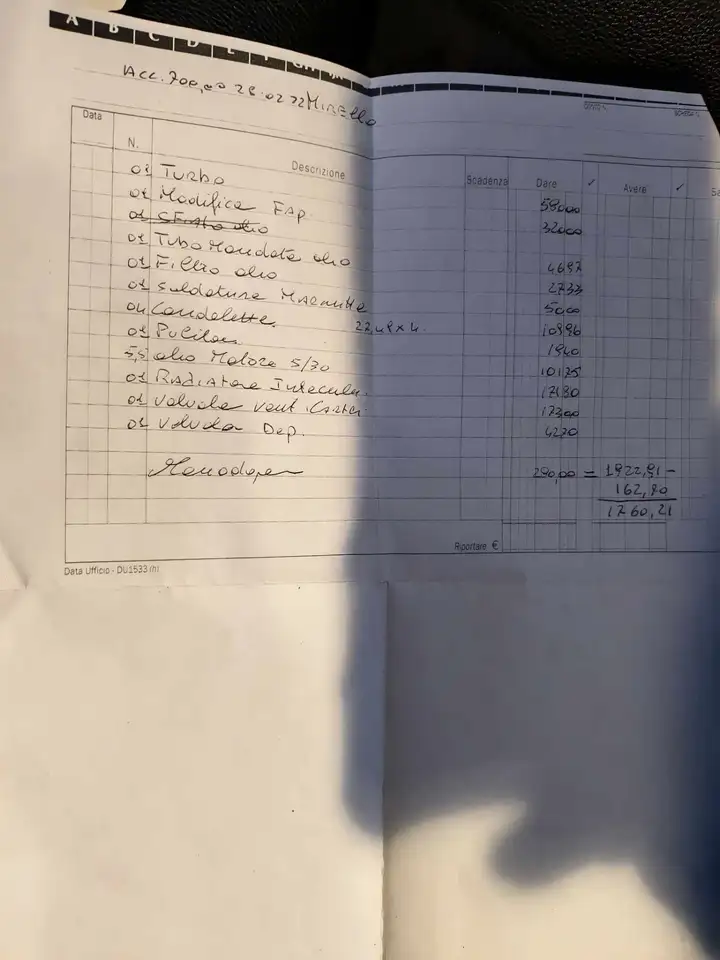 A B C D E F
Acc. 700,00 28.02 22 MIRELLO
Data N. Descrizione Scadenza Dare ✓ Avere ✓
01 Turbo 580,00
01 Modifica FAP 320,00
01 olio
01 Tubo Mandata olio 46,97
01 Filtro olio 27,33
01 Saldatura Marmitta 50,00
04 Candelette 22,49 x 4. 109,96
01 19,40
5,5 olio Motore 5/30 101,75
01 Radiatore 171,80
01 Valvola Vent. Carter 173,00
01 Valvola Dep. 42,70
Manodopera 280,00 = 1922,91 -
162,70
1760,21
Riportare €
Data Ufficio - DU1533